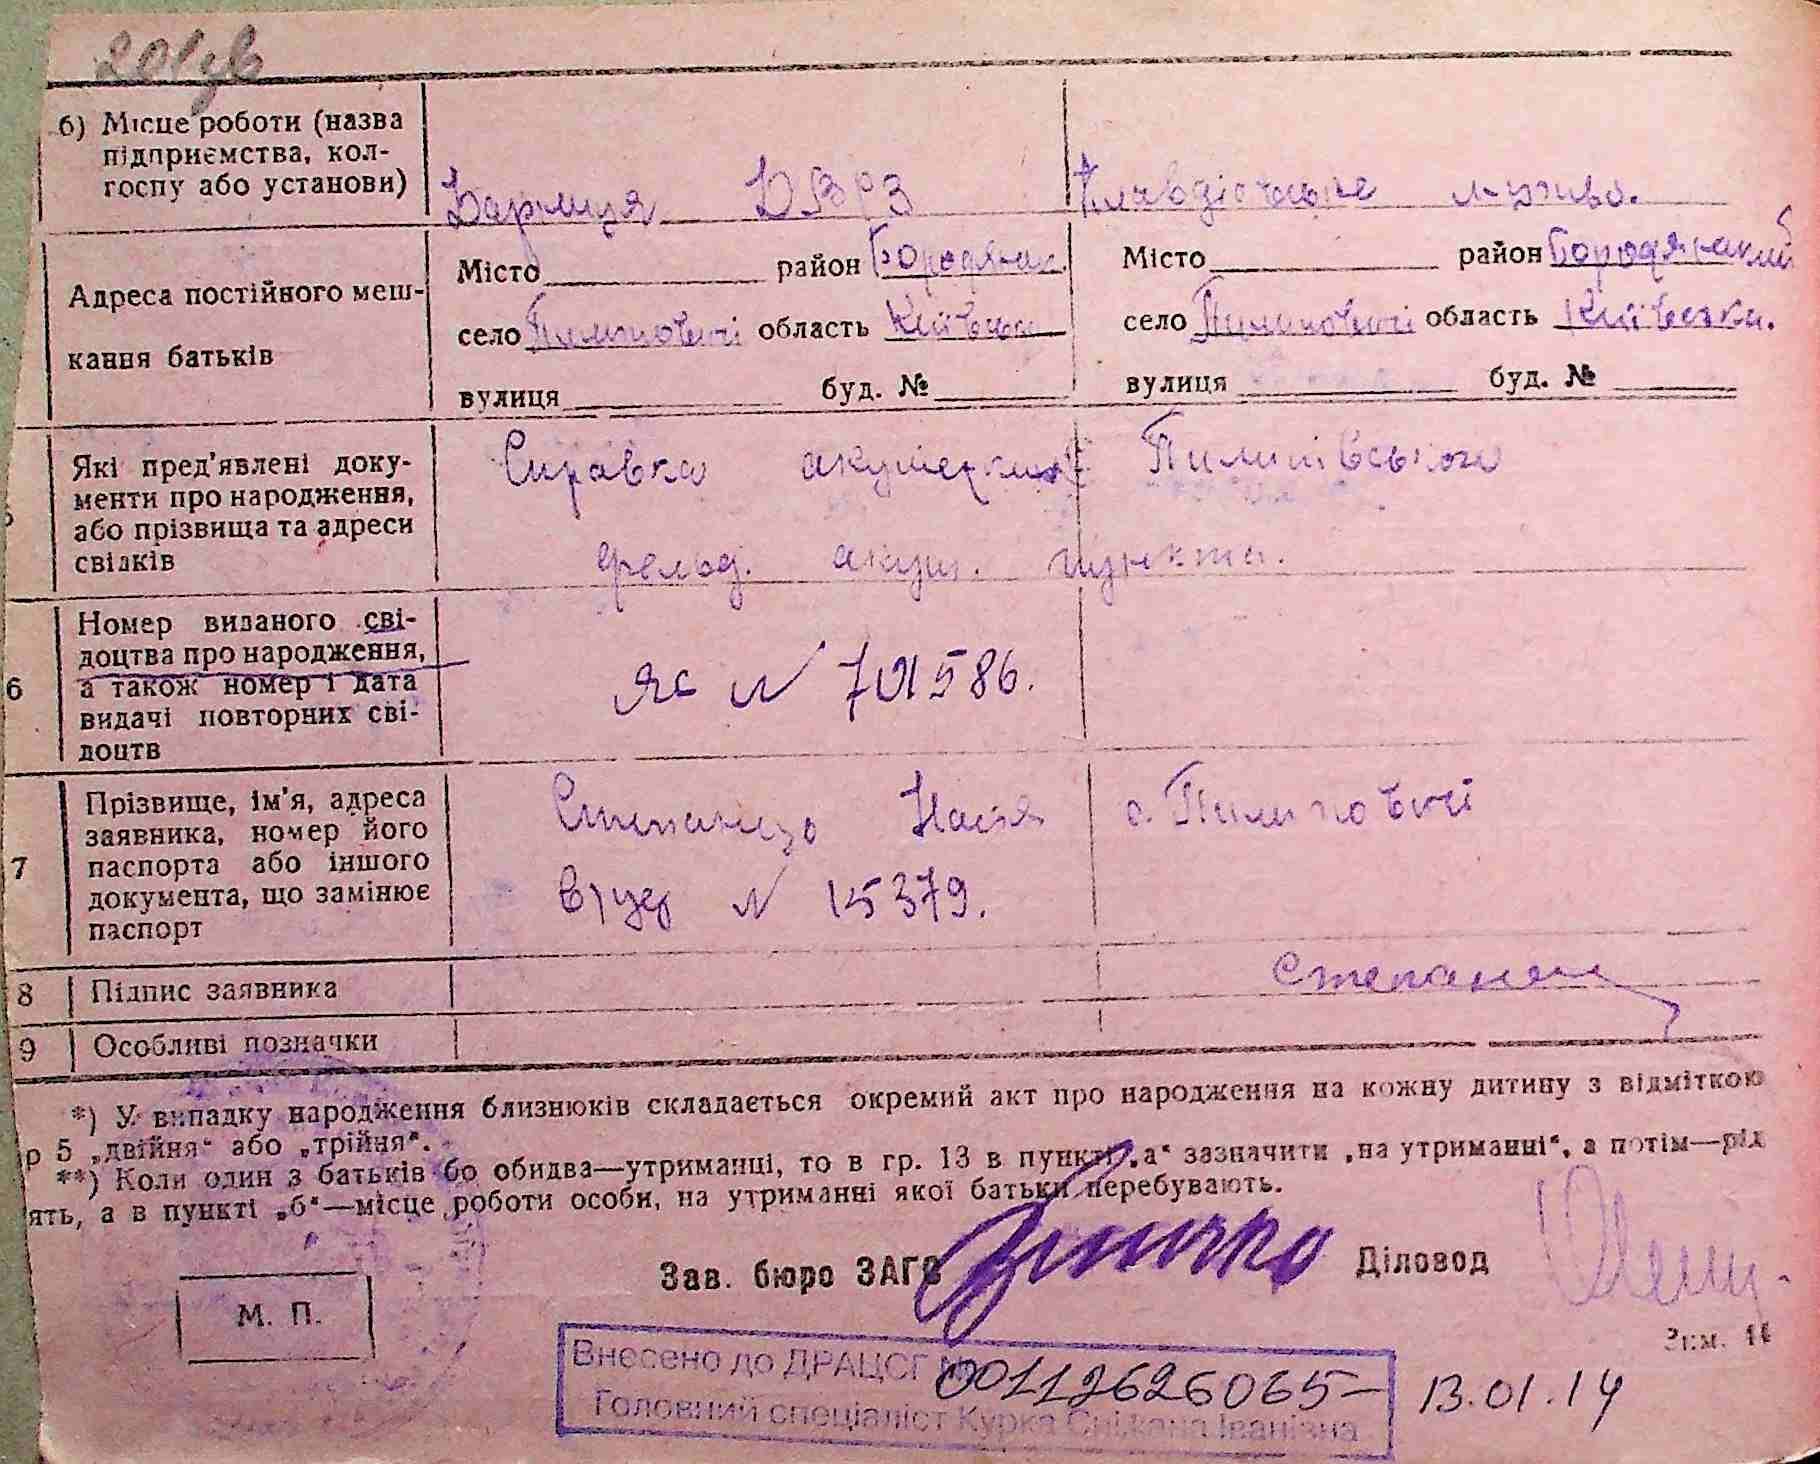 201зв
б) Місце роботи (назва
підприємства, кол-
госпу або установи)
Дарниця ДВРЗ
Клавдієвське лісниче.
Адреса постійного меш-
кання батьків
Місто район Бородянск.
село Пилиповичі область Київська
вулиця буд. №
Місто район Бородянский
село Пилиповичі область Київська.
вулиця буд. №
Які пред'явлені доку-
менти про народження,
або прізвища та адреси
свідків
Справка акушерки Пилипівського
фельд. акуш. пункта.
6
Номер виданого сві-
доцтва про народження,
а також номер і дата
видачі повторних сві-
доцтв
ЯС № 701586.
7
Прізвище, ім'я, адреса
заявника, номер його
паспорта або іншого
документа, що замінює
паспорт
Настя с. Пилиповичі
№ 15379.
8 Підпис заявника
9 Особливі позначки
*) У випадку народження близнюків складається окремий акт про народження на кожну дитину з відміткою
р 5 „двійня" або „трійня".
**) Коли один з батьків бо обидва—утриманці, то в гр. 13 в пункті „а" зазначити „на утриманні", а потім—рід
ять, а в пункті „б"—місце роботи особи, на утриманні якої батьки перебувають.
Зав. бюро ЗАГС Діловод
М. П.
Зкм. 11
Внесено до ДРАЦСГ № 00112626065– 13.01.14
Головний спеціаліст Курка Сніжана Іванівна